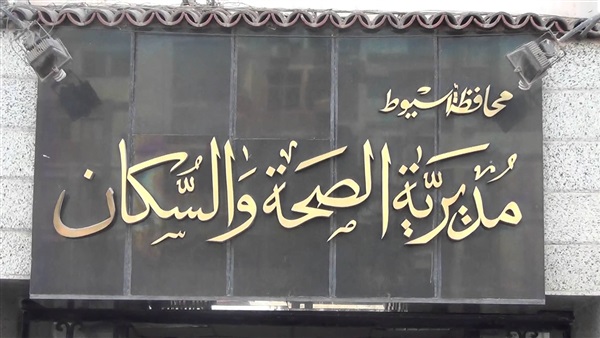 محافظة أسيوط
مُديريَّة الصحة وَالسُّكان